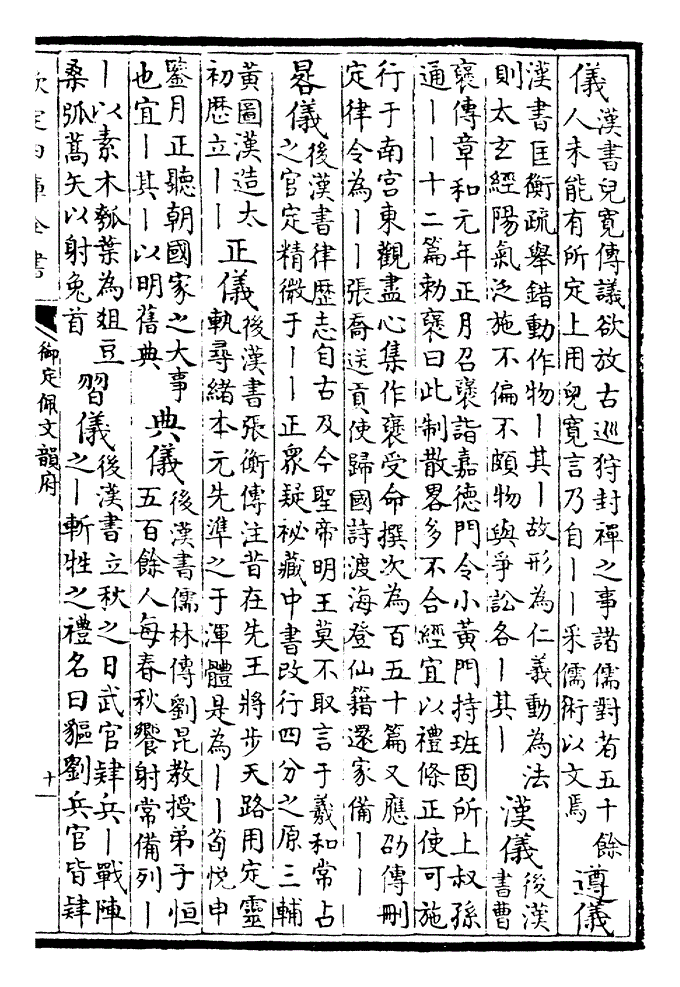 儀
漢書兒寬傳議欲放古巡狩封禪之事諸儒對者五十餘
人未能有所定上用兒寬言乃自丨丨采儒術以文焉
遵儀
漢書匡衡疏舉錯動作物丨其丨故形為仁義動為法
則太玄經陽氣泛施不偏不頗物與爭訟各丨其丨
漢儀
後漢
書曹
褒傳章和元年正月召褒詣嘉德門令小黃門持班固所上叔孫
通丨丨十二篇勑褒曰此制散畧多不合經宜以禮條正使可施
行于南宮東觀盡心集作褒受命撰次為百五十篇又應劭傳刪
定律令為丨丨張喬送貢使歸國詩渡海登仙籍還家備丨丨
晷儀
後漢書律歴志自古及今聖帝明王莫不取言于羲和常占
之官定精微于丨丨正眾疑祕藏中書改行四分之原三輔
黃圖漢造太
初歴立丨丨
正儀
後漢書張衡傳注昔在先王將步天路用定靈
軌尋緒本元先準之于渾體是為丨丨荀悅申
鑒月正聽朝國家之大事
也宜丨其丨以明舊典
典儀
後漢書儒林傳劉昆教授弟子恒
五百餘人每春秋饗射常備列丨
丨以素木瓠葉為俎豆
桑弧蒿矢以射兔首
習儀
後漢書立秋之日武官肄兵丨戰陣
之丨斬牲之禮名曰貙劉兵官皆肄
欽定四庫全書
御定佩文韻府
十